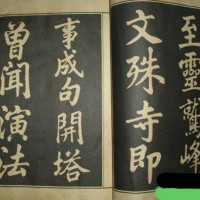 至靈鷲峰
文殊寺即
事成句開塔
曾聞演法